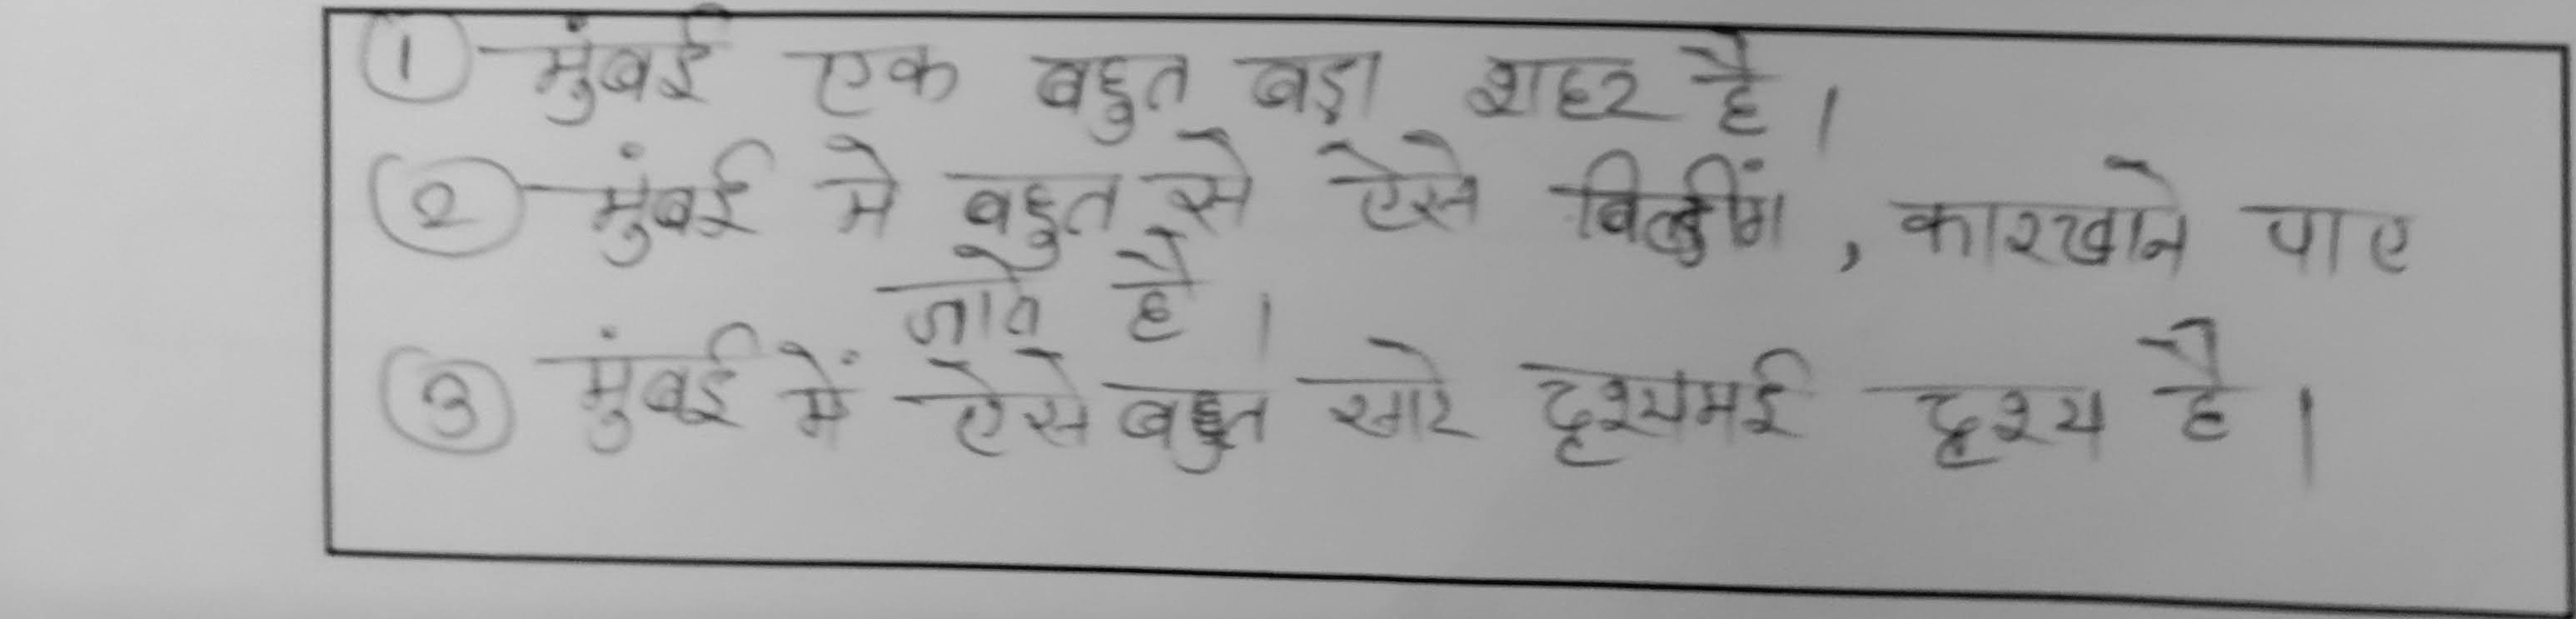 ① मुंबई एक बहुत बड़ा शहर है।
② मुंबई मे बहुत से ऐसे बिल्डींग, कारखाने पाए
जाते है।
③ मुंबई में ऐसे बहुत सारे दृश्यमई दृश्य है।